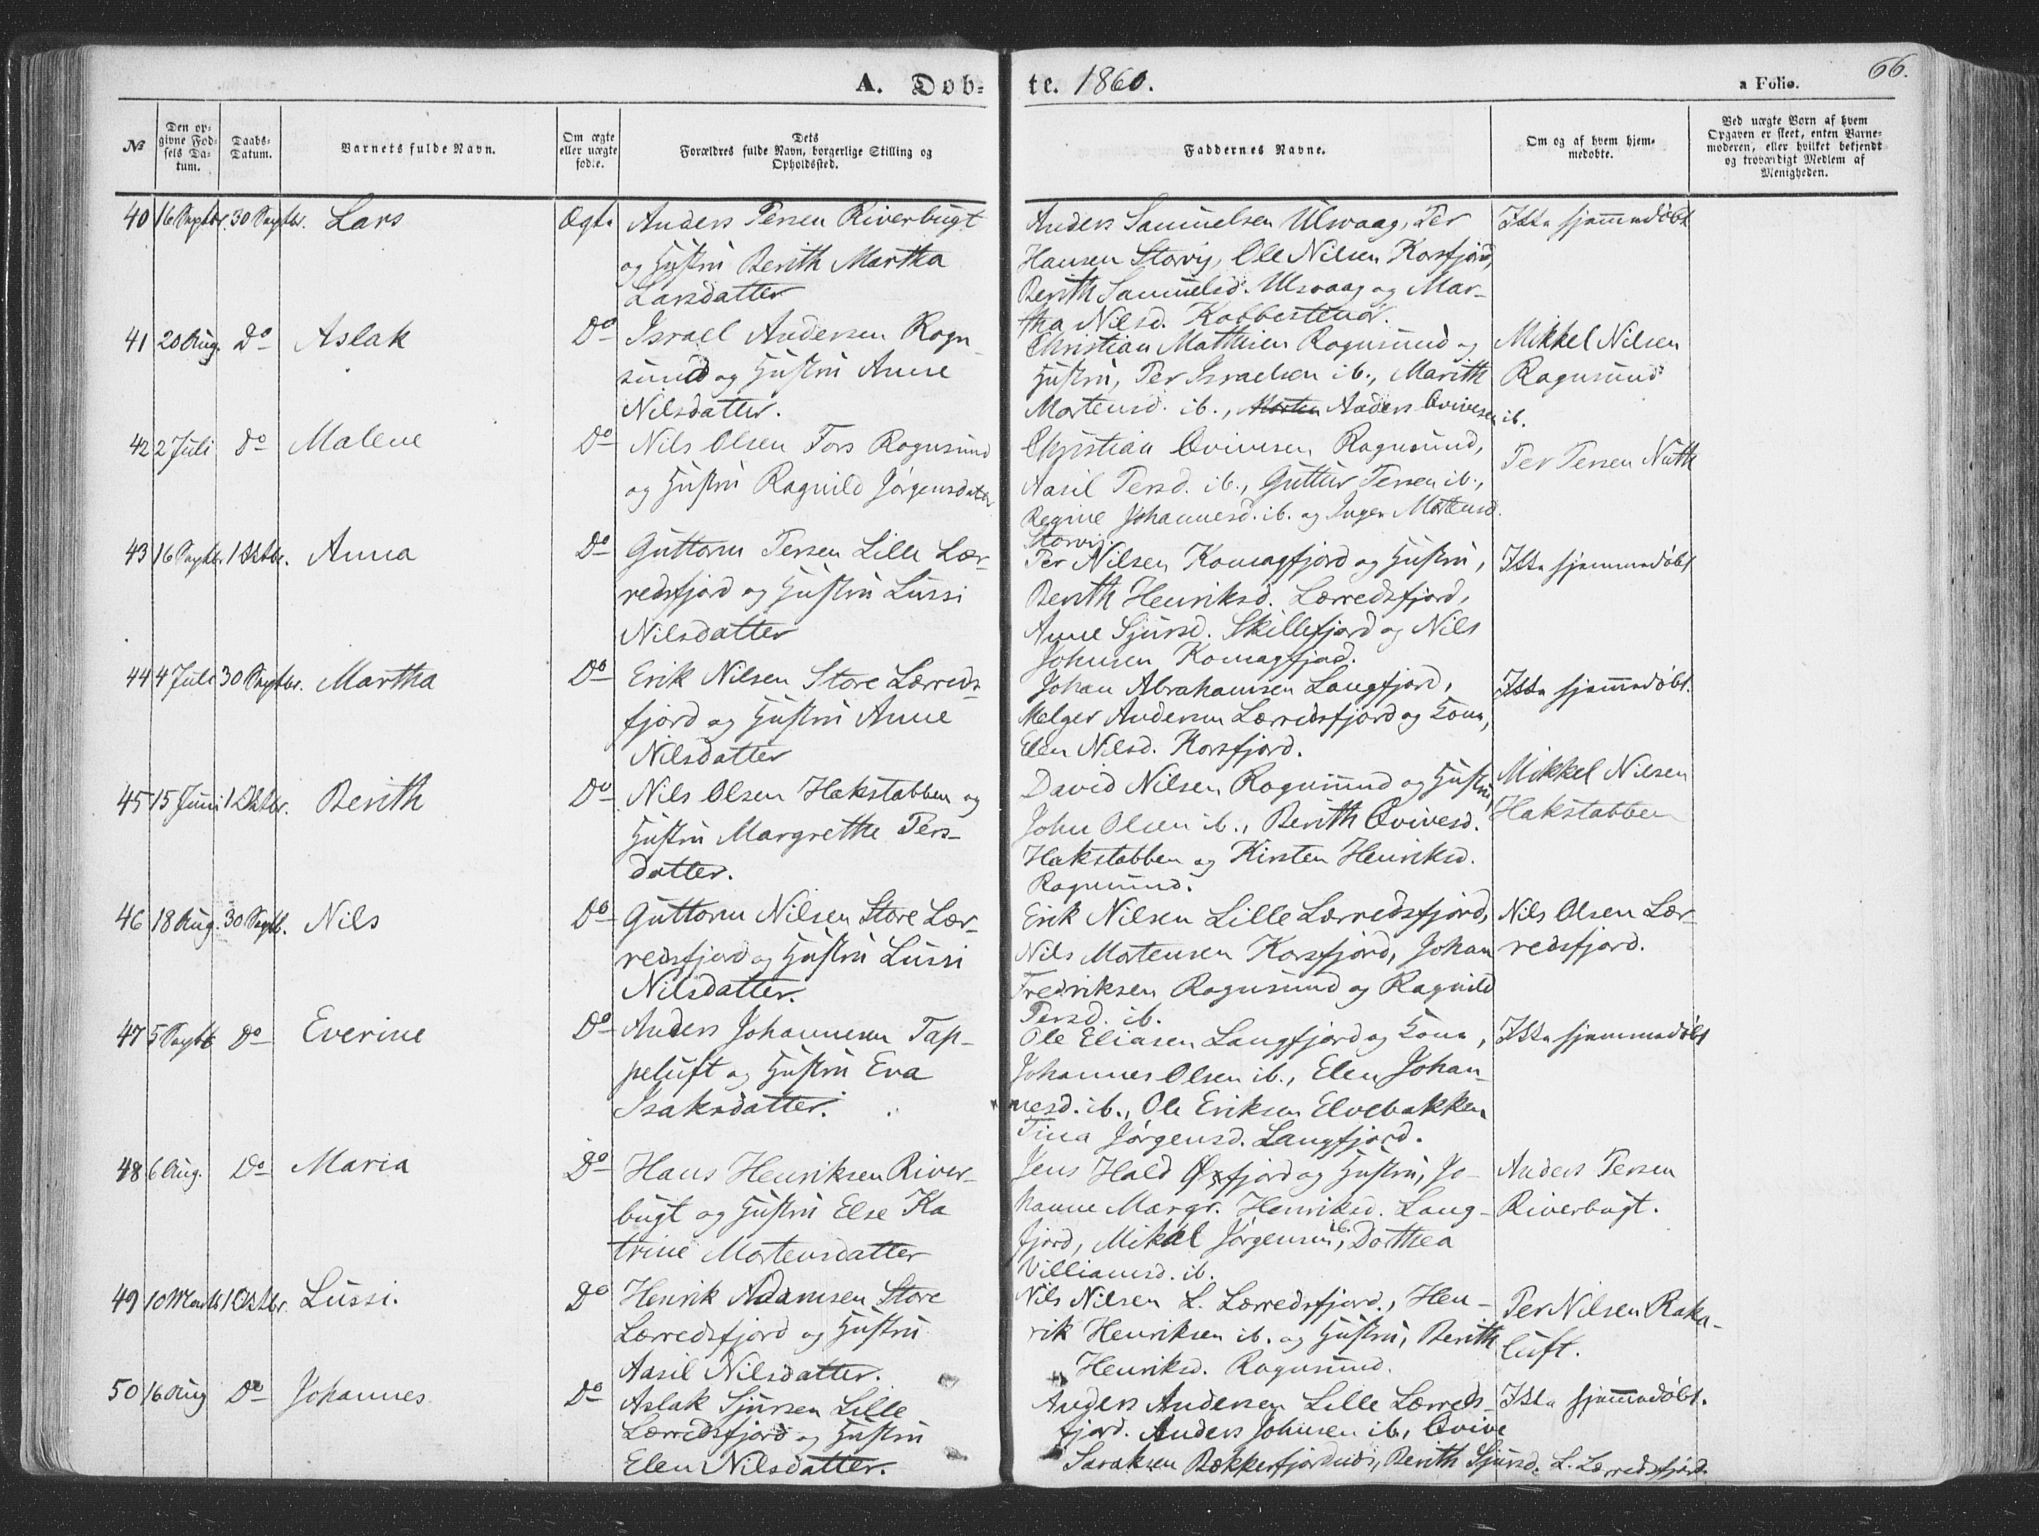 A. Døb-
te. 1860.
a Folio.
66.
No
Den op-
givne Fød-
sels Da-
tum.
Daabs-
Datum.
Barnets fulde Navn.
Om ægte
eller uægte
fød:e.
Dets
Forældres fulde Navn, borgerlige Stilling og
Opholdssted.
Faddernes Navne.
Om og af hvem hjem-
medøbte.
Ved uægte Børn af hvem
Opgaven er skeet, enten Barne-
moderen, eller hvilket bekjendt
og troværdigt Medlem af
Menigheden.
40 16 Septbr. 30 Septbr. Lars Ægte
Anders Persen Riverbugt
og Hustru Berith Martha
Larsdatter
Anders Samuelsen Ulsvaag, Per
Hansen Storvig, Ole Nilsen Korsfjord,
Berith Samuelsd. Ulsvaag og Mar-
tha Nilsd. Kobbestenør.
Ikke hjemmedøbt
41 20 Aug. Do Aslak Do
Israel Andersen Rogn-
sund og Hustru Anne
Nilsdatter.
Christian Mathisen Rognsund og
Hustru, Per Israelsen ib., Marith
Mortensd. ib., Morten Anders Qvivesen ib.
Mikkel Nilsen
Rognsund
42 2 Juli do Malene Do
Nils Olsen Fors Rognsund
og Hustru Ragnild Jørgensdatter
Christian Qvivesen Rognsund,
Aasil Persd. ib., Guttur Persen ib.,
Regine Johannesd. ib. og Inger Mortensd.
Storvig.
Per Persen Nuth
43 16 Septbr. 1 Oktbr. Anna Do
Guttorm Persen Lille Lær-
redsfjord og Hustru Lussi
Nilsdatter
Per Nilsen Komagfjord og Hustru,
Berith Henriksd. Lærredsfjord,
Anne Sjursd. Skillefjord og Nils
Johnsen Komagfjord.
Ikke hjemmedøbt
44 4 Juli 30 Septbr. Martha Do
Erik Nilsen Store Lærreds-
fjord og Hustru Anne
Nilsdatter
Johan Abrahamsen Langfjord,
Melger Andersen Lærredsfjord og Kone,
Elen Nilsd. Korsfjord.
Ikke hjemmedøbt.
45 15 Juni 1 Oktbr. Berith Do
Nils Olsen Hakstabben og
Hustru Margrethe Pers-
datter.
David Nilsen Rognsund og Hustru,
John Olsen ib., Berith Qvivesd.
Hakstabben og Kirsten Henriksd.
Rognsund.
Mikkel Nilsen
Hakstabben
46 18 Aug. 30 Septb. Nils Do
Guttorm Nilsen Store Lær-
redsfjord og Hustru Lussi
Nilsdatter.
Erik Nilsen Lille Lærredsfjord,
Nils Mortensen Korsfjord, Johan
Fredriksen Rognsund og Ragnild
Persd. ib.
Nils Olsen Lær-
redsfjord.
47 5 Septb. Do Everine Do
Anders Johannesen Tap-
peluft og Hustru Eva
Isaksdatter.
Ole Eliasen Langfjord og Kone,
Johannes Olsen ib., Elen Johan-
nesd. ib., Ole Eriksen Elvebakken
Tina Jørgensd. Langfjord.
Ikke hjemmedøbt
48 6 Aug. Do Maria Do
Hans Henriksen River-
bugt og Hustru Else Ka
trine Mortensdatter
Jens Hald Øxfjord og Hustru, Jo-
hanne Margr. Henriksd. Lang-
fjord, Mikal Jørgensen ib., Dorthea
Villiamsd. ib.
Anders Persen
Riverbugt.
49 10 Marts 1 Oktbr. Lussi. Do
Henrik Adamsen Store
Lærredsfjord og Hustru
Aasil Nilsdatter.
Nils Nilsen L. Lærredsfjord., Hen-
rik Henriksen ib. og Hustru, Berith
Henriksd. Rognsund.
Per Nilsen Rake-
luft.
50 16 Aug Do Johannes Do
Aslak Sjursen Lille
Lærredsfjord og Hustru
Elen Nilsdatter.
Anders Andersen Lille Lærreds-
fjord. Anders Johnsen ib., Qvive
Saraksen Bekkerfjordnæs, Berith Sjursd. L. Lærredsfjord.
Ikke hjemmedøbt.